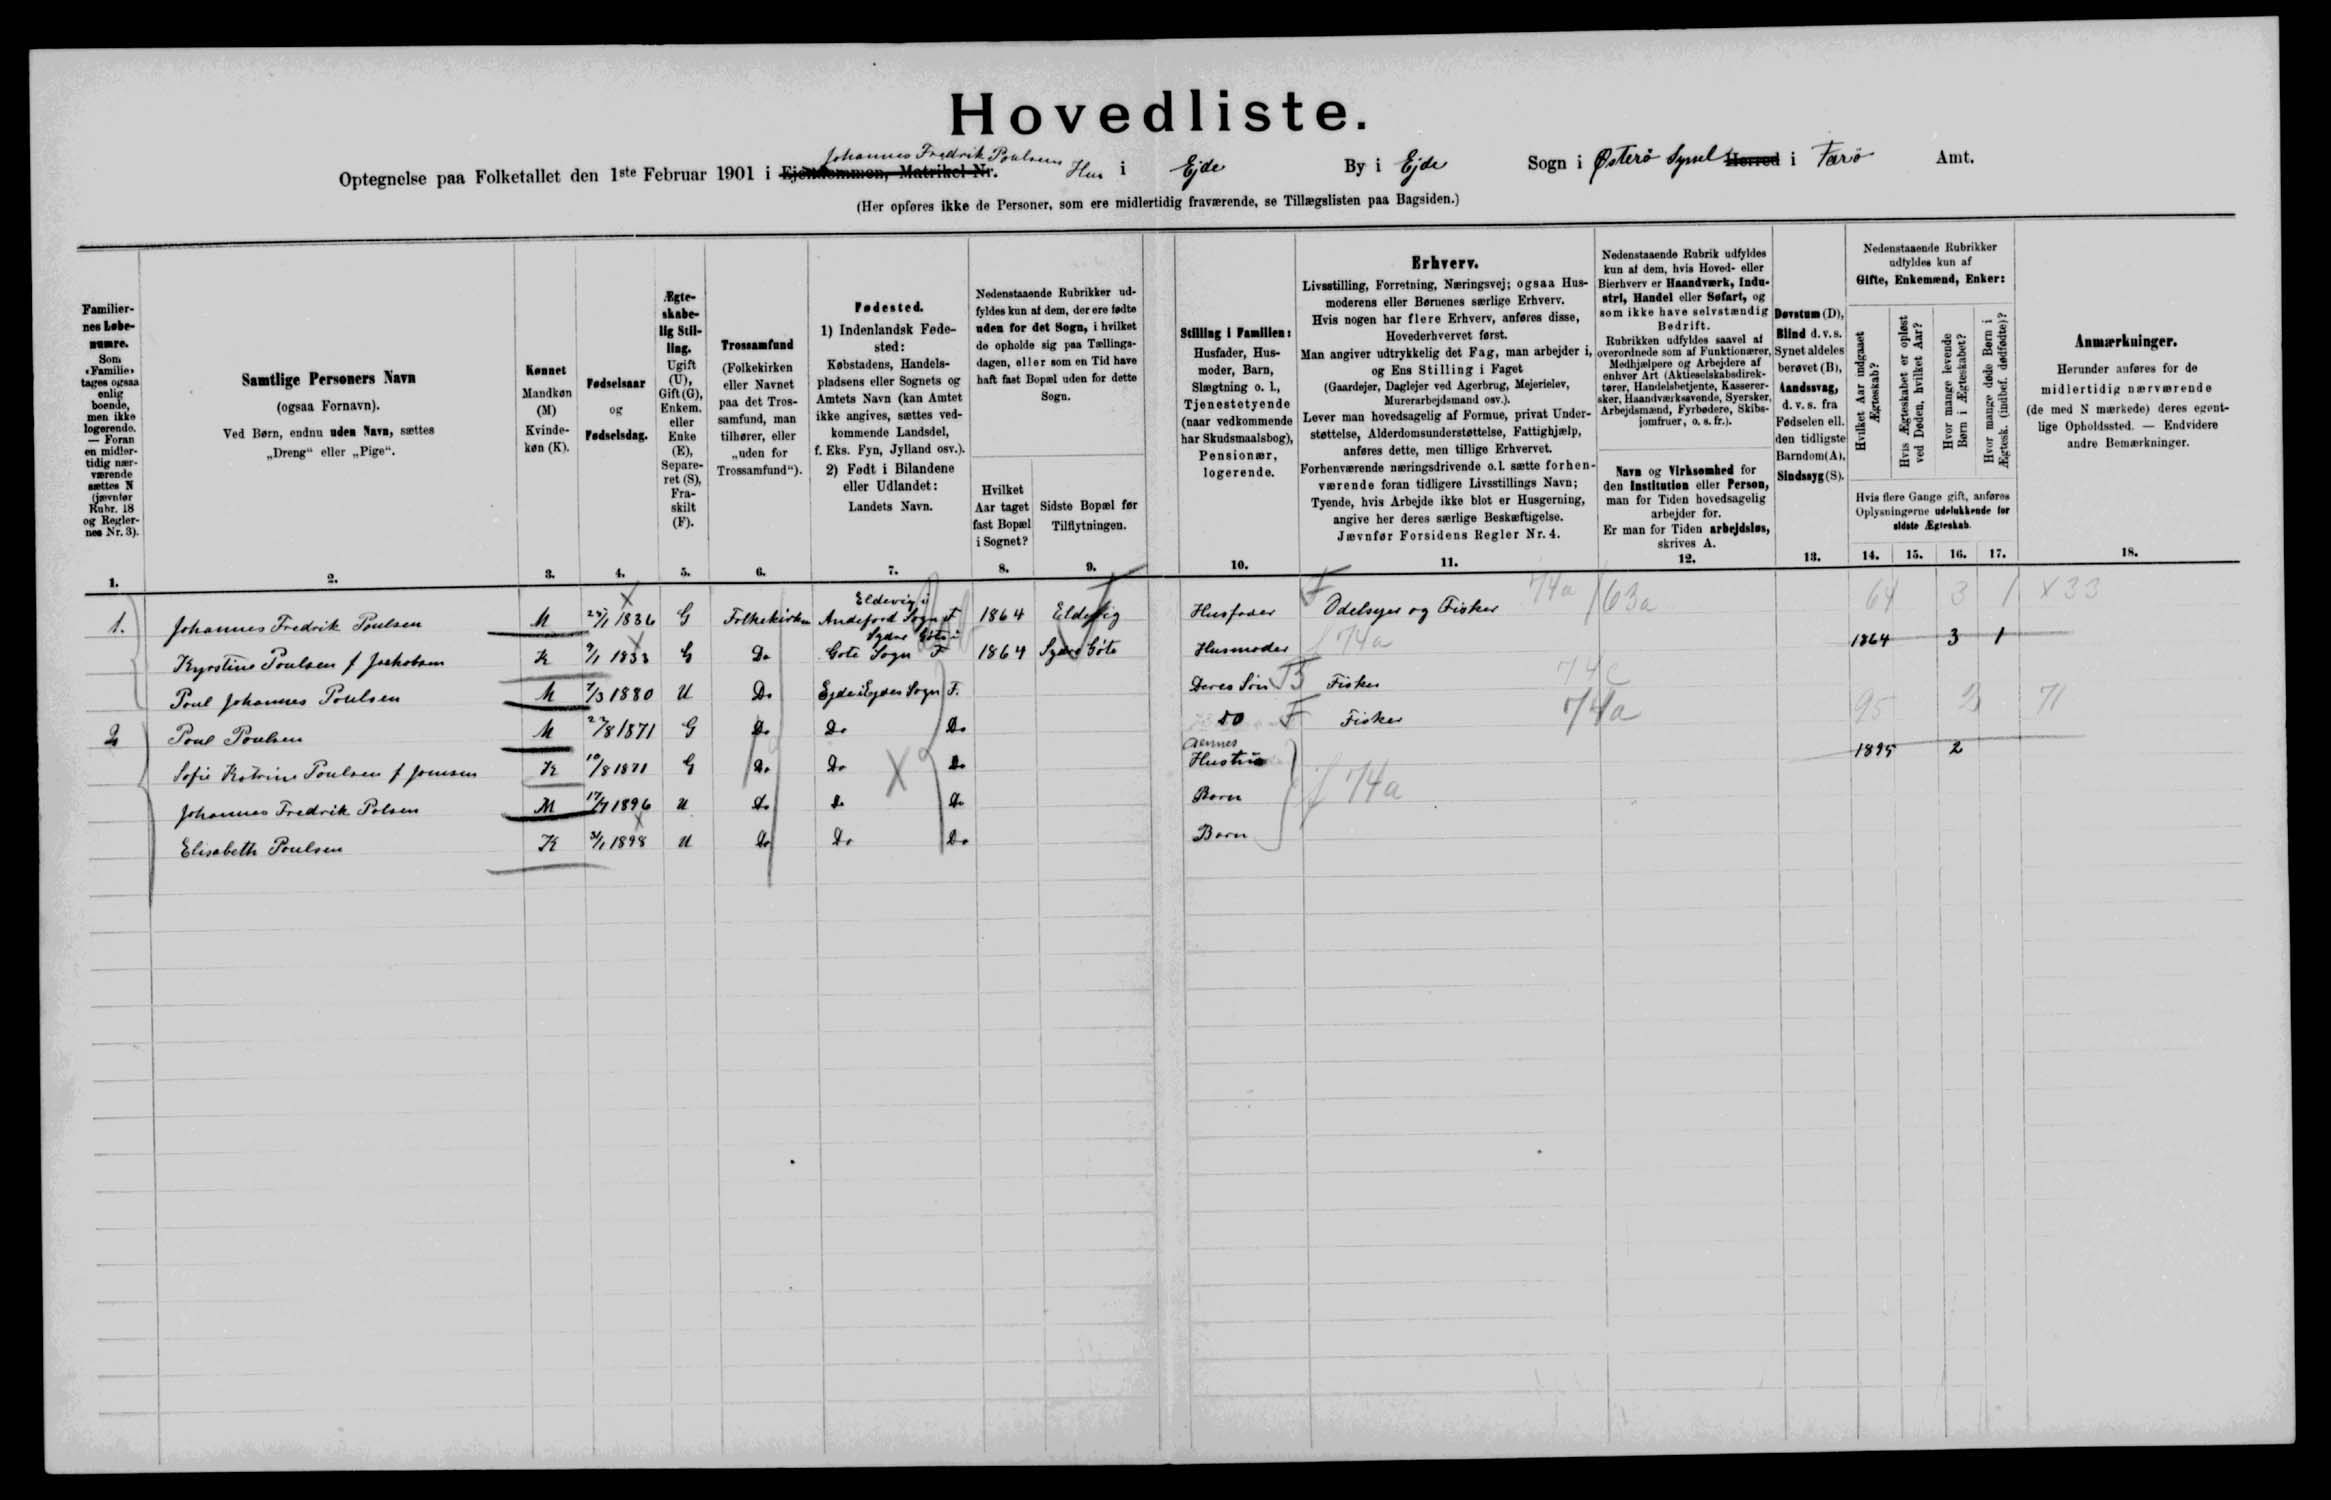 Hovedliste.
Optegnelse paa Folketallet den 1ste Februar 1901 i Ejendommen, Matrikel-Nr. Johannes Fredrik Poulsens Hus i Ejde By i Ejde Sogn i Østerø Syssel Herred i Færø Amt.
(Her opføres ikke de Personer, som ere midlertidig fraværende, se Tillægslisten paa Bagsiden.)
Familiernes Løbenumre.
Som «Familie» tages ogsaa enlig boende, men ikke logerende. — Foran en midlertidig nærværende sættes N (jævnfør Rubr. 18 og Reglernes Nr. 3).
1.
Samtlige Personers Navn
(ogsaa Fornavn).
Ved Børn, endnu uden Navn, sættes
„Dreng“ eller „Pige“.
2.
Kønnet
Mandkøn (M)
Kvindekøn (K).
3.
Fødselsaar
og
Fødselsdag.
4.
Ægteskabelig Stilling.
Ugift (U), Gift (G), Enkem. eller Enke (E), Separeret (S), Fraskilt (F).
5.
Trossamfund
(Folkekirken eller Navnet paa det Trossamfund, man tilhører, eller „uden for Trossamfund“).
6.
Fødested.
1) Indenlandsk Fødested:
Købstadens, Handelspladsens eller Sognets og Amtets Navn (kan Amtet ikke angives, sættes vedkommende Landsdel, f. Eks. Fyn, Jylland osv.).
2) Født i Bilandene eller Udlandet:
Landets Navn.
7.
Nedenstaaende Rubrikker udfyldes kun af dem, der ere fødte uden for det Sogn, i hvilket de opholde sig paa Tællingsdagen, eller som en Tid have haft fast Bopæl uden for dette Sogn.
Hvilket Aar taget fast Bopæl i Sognet?
8.
Sidste Bopæl før Tilflytningen.
9.
Stilling i Familien:
Husfader, Husmoder, Barn, Slægtning o. l., Tjenestetyende (naar vedkommende har Skudsmaalsbog), Pensionær, logerende.
10.
Erhverv.
Livsstilling, Forretning, Næringsvej; ogsaa Husmoderens eller Børnenes særlige Erhverv.
Hvis nogen har flere Erhverv, anføres disse, Hovederhvervet først.
Man angiver udtrykkelig det Fag, man arbejder i, og Ens Stilling i Faget
(Gaardejer, Daglejer ved Agerbrug, Mejerielev, Murerarbejdsmand osv.).
Lever man hovedsagelig af Formue, privat Understøttelse, Alderdomsunderstøttelse, Fattighjælp, anføres dette, men tillige Erhvervet.
Forhenværende næringsdrivende o. l. sætte forhenværende foran tidligere Livsstillings Navn;
Tyende, hvis Arbejde ikke blot er Husgerning, angive her deres særlige Beskæftigelse.
Jævnfør Forsidens Regler Nr. 4.
11.
Nedenstaaende Rubrik udfyldes kun af dem, hvis Hoved- eller Bierhverv er Haandværk, Industri, Handel eller Søfart, og som ikke have selvstændig Bedrift.
Rubrikken udfyldes saavel af overordnede som af Funktionærer, Medhjælpere og Arbejdere af enhver Art (Aktieselskabsdirektører, Handelsbetjente, Kasserersker, Haandværkssvende, Syersker, Arbejdsmænd, Fyrbødere, Skibsjomfruer, o. s. fr.).
Navn og Virksomhed for den Institution eller Person, man for Tiden hovedsagelig arbejder for.
Er man for Tiden arbejdsløs, skrives A.
12.
Døvstum (D), Blind d. v. s. Synet aldeles berøvet (B), Aandssvag, d. v. s. fra Fødselen ell. den tidligste Barndom (A), Sindssyg (S).
13.
Nedenstaaende Rubrikker udfyldes kun af
Gifte, Enkemænd, Enker:
Hvilket Aar indgaaet Ægteskab?
Hvis Ægteskabet er opløst ved Døden, hvilket Aar?
Hvor mange levende Børn i Ægteskabet?
Hvor mange døde Børn i Ægtesk. (indbef. dødfødte)?
Hvis flere Gange gift, anføres Oplysningerne udelukkende for sidste Ægteskab.
14. 15. 16. 17.
Anmærkninger.
Herunder anføres for de midlertidig nærværende (de med N mærkede) deres egentlige Opholdssted. — Endvidere andre Bemærkninger.
18.
1. Johannes Fredrik Poulsen M 1836 G Folkekirken Eldevig i Andefjord Sogn F 1864 Eldevig Husfader F Odelsejer og Fisker 74a 63a 64 3 1 X 33
Kyrstine Poulsen f Jackobsen K 9/1 1833 G Do Sydre Gøte i Gøte Sogn F 1864 Sydre Gøte Husmoder f 74a 1864 3 1
Poul Johannes Poulsen M 7/3 1880 U Do Ejde i Ejdes Sogn F. Deres Søn B Fisker 74c
2 Poul Poulsen M 27/8 1871 G Do Do Do do F Fisker 74a 95 2 71
Sofie Katrine Poulsen f Joensen K 10/8 1871 G Do Do Do Hustru 1895 2
Johannes Fredrik Polsen M 17/7 1896 U Do Do Do Barn f 74a
Elisabeth Poulsen K 3/1 1898 U Do Do Do Barn